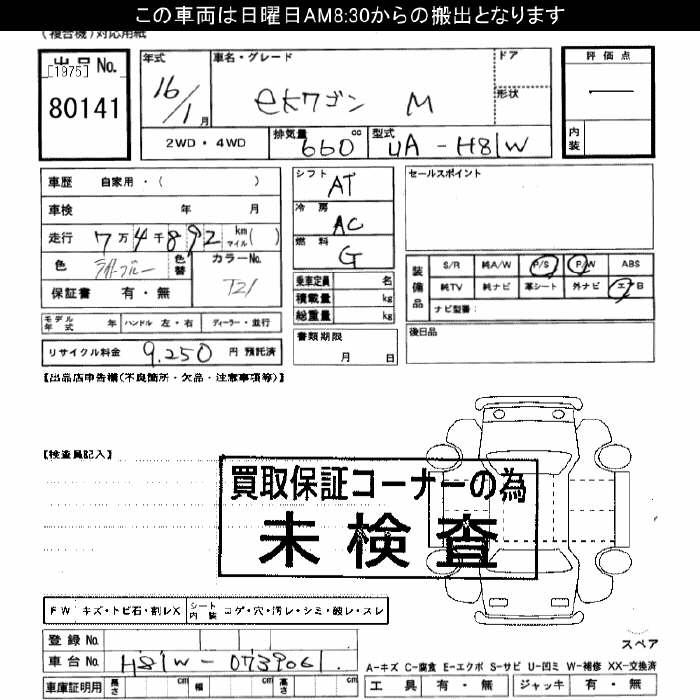 この車両は日曜日AM8:30からの搬出となります
(複合機)対応用紙
出品No.
[1975]
80141
年式
16/1月
車名・グレード
ekワゴン M
ドア
形状
評価点
内装
2WD・4WD
排気量 660 cc
型式 UA-H81W
車歴 自家用・( )
車検 年 月
走行 7万4千892 km マイル( )
色 ライトブルー
色替
カラーNo. T21
保証書 有・無
シフト AT
冷房 AC
燃料 G
乗車定員 名
積載量 kg
総重量 kg
セールスポイント
装備品
S/R 純A/W P/S P/W ABS
純TV 純ナビ 革シート 外ナビ エアB
ナビ型番:
モデル年式 年 ハンドル 左・右 ディーラー・並行
書類期限 月 日
後日品
リサイクル料金 9,250 円 預託済
【出品店申告欄(不良箇所・欠品・注意事項等)】
【検査員記入】
買取保証コーナーの為
未検査
FW キズ・トビ石・割レX
シート内装 コゲ・穴・汚レ・シミ・破レ・スレ
登録No.
車台No. H81W-0739061
車庫証明用 長さ cm 幅 cm 高さ cm
スペア
A-キズ C-腐食 E-エクボ S-サビ U-凹ミ W-補修 XX-交換済
工具 有・無 ジャッキ 有・無